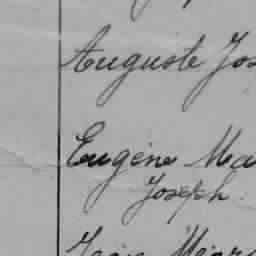 Auguste Jos
Eugène Ma
Joseph